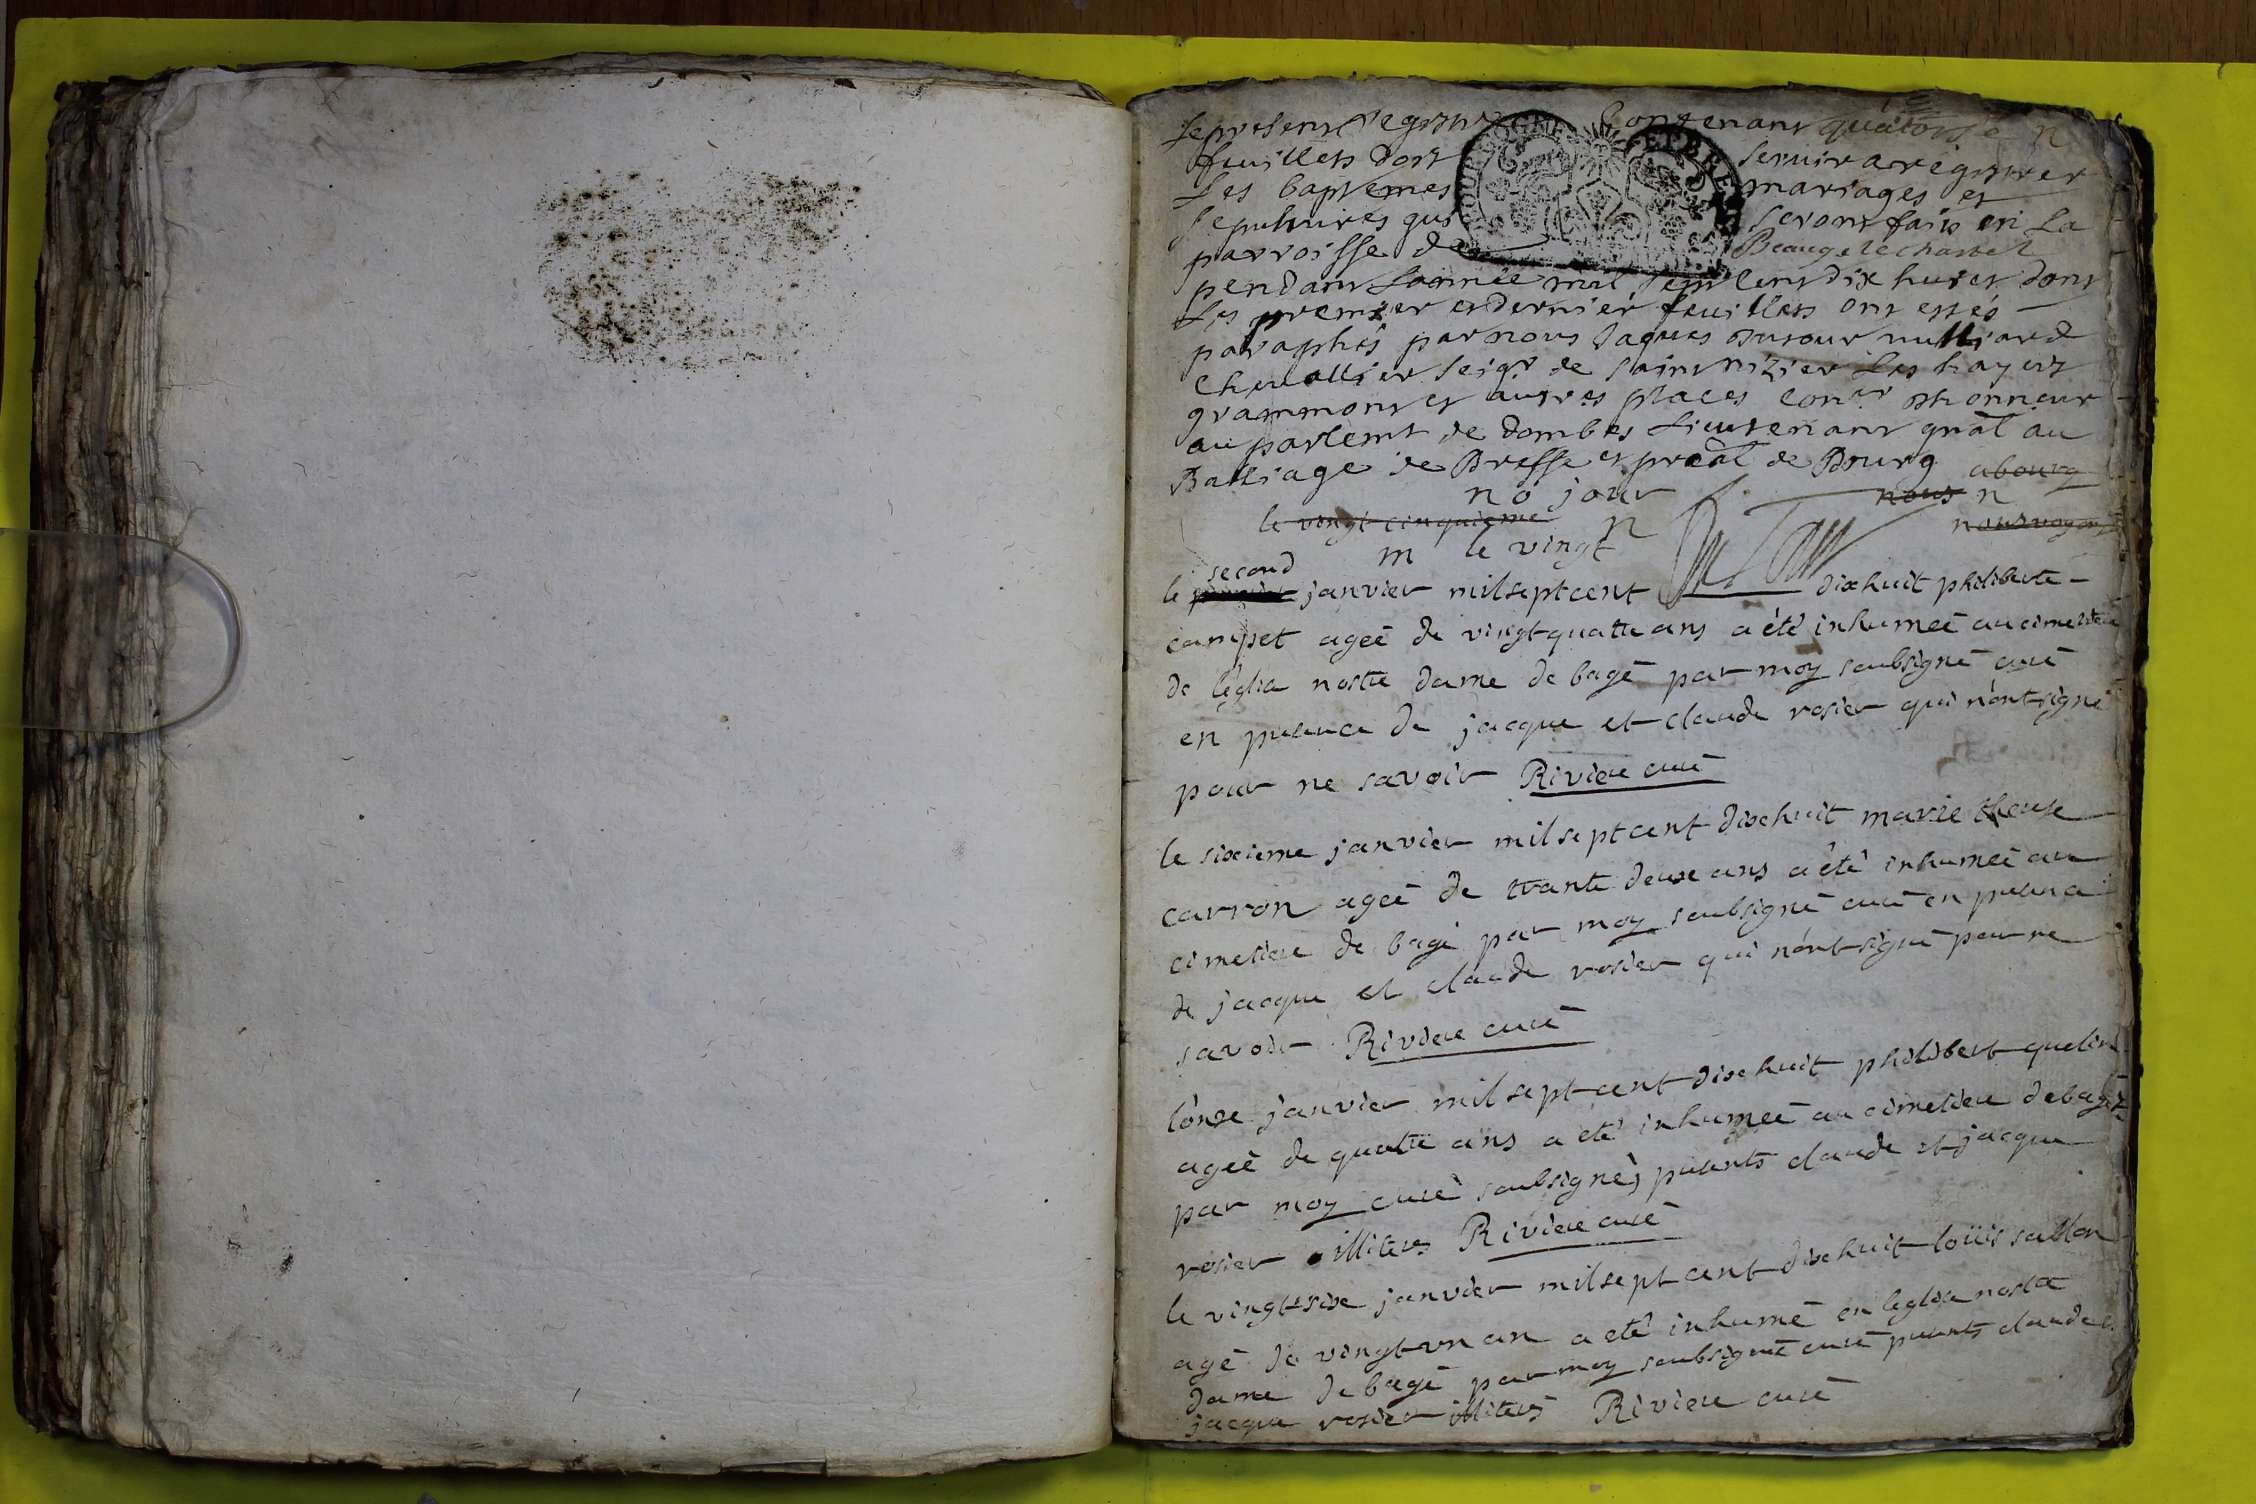 Le present registre Contenant quatorse
feuillets doit servir a registrer
Les baptemes mariages et
sepultures qui seront fais en La
parroisse de Beaugé le chastel
pendant Lannée mil sept cens dix huict dont
Les premier et dernier feuillets ont estés
paraphés par nous Jaques
Chevallier seigr de saint nizier Les
grammont et autres places conser dhonneur
au parlemt de dombes Lieutenant gnal au
Balliage de Bresse et preal de Bourg abourg
no jour nous n
le vingt cinquieme n nous
m le vingt
second
le janvier mil sept cent dix huit philiberte
campet ageé de vingt quatre ans a été inhumeé au cimetiere
de leglise nostre dame de bagé par moy soubsigné curé
en presence de jacque et claude rosier qui n'ont signé
pour ne savoir Riviere curé
le sixieme janvier mil sept cent dix huit marie therese
carron ageé de trante deux ans a été inhumeé au
cimetiere de bagé par moy soubsigné curé en presence
de jacque et claude rosier qui n'ont signé pour ne
savoir Riviere curé
l'onze janvier mil sept cent dix huit philibert
ageé de quatre ans a eté inhumeé au cimetiere de bagé
par moy curé soubsigné, presents claude et jacque
rosier illiterés Riviere curé
le vingt six janvier mil sept cent dix huit loüis
agé de vingt vn an a eté inhumé en leglise nostre
dame de bagé par moy soubsigné curé presents claude et
jacque rosier illiterés Riviere curé